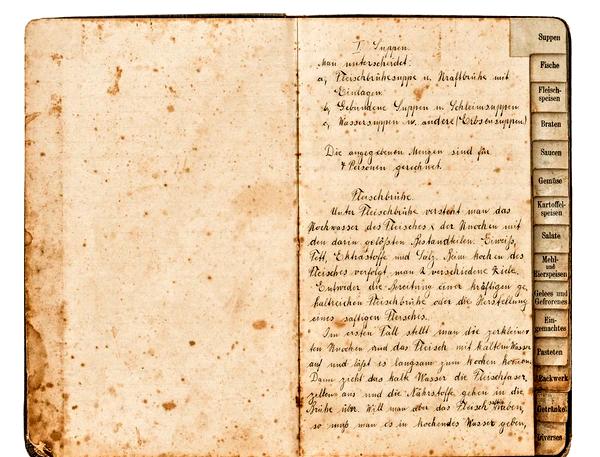 I. Suppen.
Man unterscheidet:
a, Fleischbrühsuppe u. Kraftbrühe mit
Einlagen.
b, Gebundene Suppen u. Schleimsuppen
c, Wassersuppen u. andere (Erbsensuppen)
Die angegebenen Mengen sind für
4 Personen gerechnet.
Fleischbrühe.
Unter Fleischbrühe versteht man das
Kochwasser des Fleisches & der Knochen mit
den darin gelösten Bestandteilen: Eiweiß,
Fett, Extraktstoffe und Salz. Beim Kochen des
Fleisches verfolgt man 2 verschiedene Ziele.
Entweder die Bereitung einer kräftigen ge
haltreichen Fleischbrühe oder die Herstellung
eines saftigen Fleisches.
Im ersten Fall stellt man die zerklein
ten Knochen und das Fleisch mit kaltem Wasser
auf und läßt es langsam zum Kochen kommen.
Dann zieht das kalte Wasser die Fleischfaser,
zellen aus und die Nährstoffe gehen in die
Brühe über. Will man aber das Fleisch
so muß man es in kochendes Wasser geben,
Suppen
Fische
Fleisch-
speisen
Braten
Saucen
Gemüse
Kartoffel-
speisen
Salate
Mehl-
und
Eierspeisen
Gelees und
Gefrorenes
Ein-
gemachtes
Pasteten
Backwerk
Getränke
Diverses